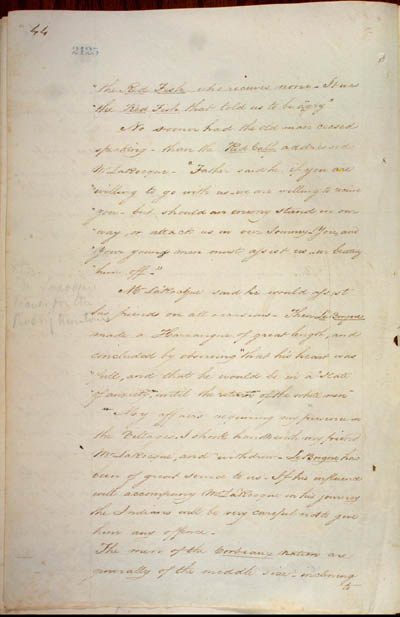 44
2125
"the Red Fish who receives none - It was
"the Red Fish that told us to be angry"
No sooner had the old man ceased
speaking - than the Red Calf addressed
Mr LaRocque - "Father said he if you are
"willing to go with us - we are willing to receive
"you - but, should an enemy stand in our
"way, or attack us in our Journey - You, and
"your young men must assist us in beating
"him off -"
Mr LaRocque said he would assist
his friends on all occasions - Then Le Borgne
made a Harrangue of great length, and
concluded by observing "that his heart was
"full, and that he would be in a State
"of anxiety" until the return of the white men
"My affairs requiring my presence in
the Villages I shook hands with my friend
Mr LaRocque, and withdrew - Le Borgne has
been of great service to us - If his influence
will accompany Mr LaRocque in his journey
the Indians will be very careful not to give
him any offence -
The men of the Corbeaux nation are
generally of the middle size - inclining
Larocque
leaves for the
Rocky Mountains